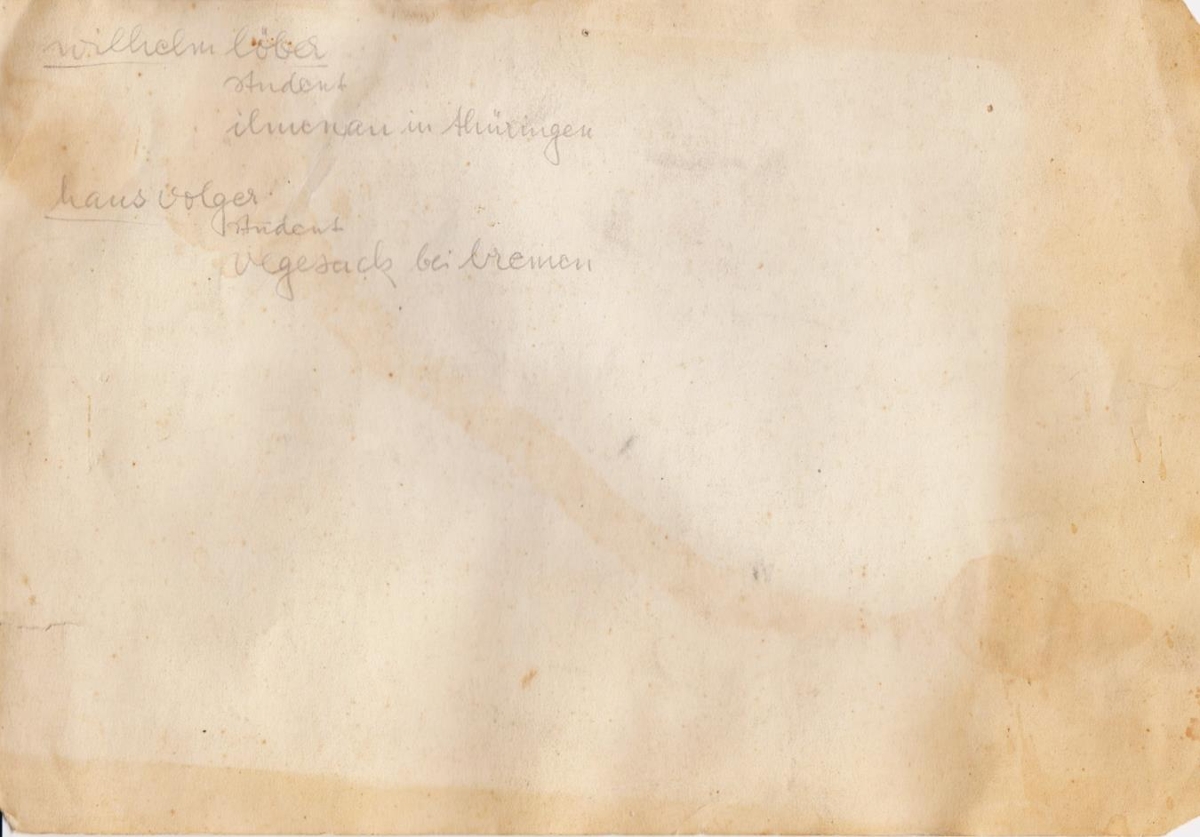 wilhelm löber
student
ilmenau in thüringen
hans volger
student
vegesack bei bremen